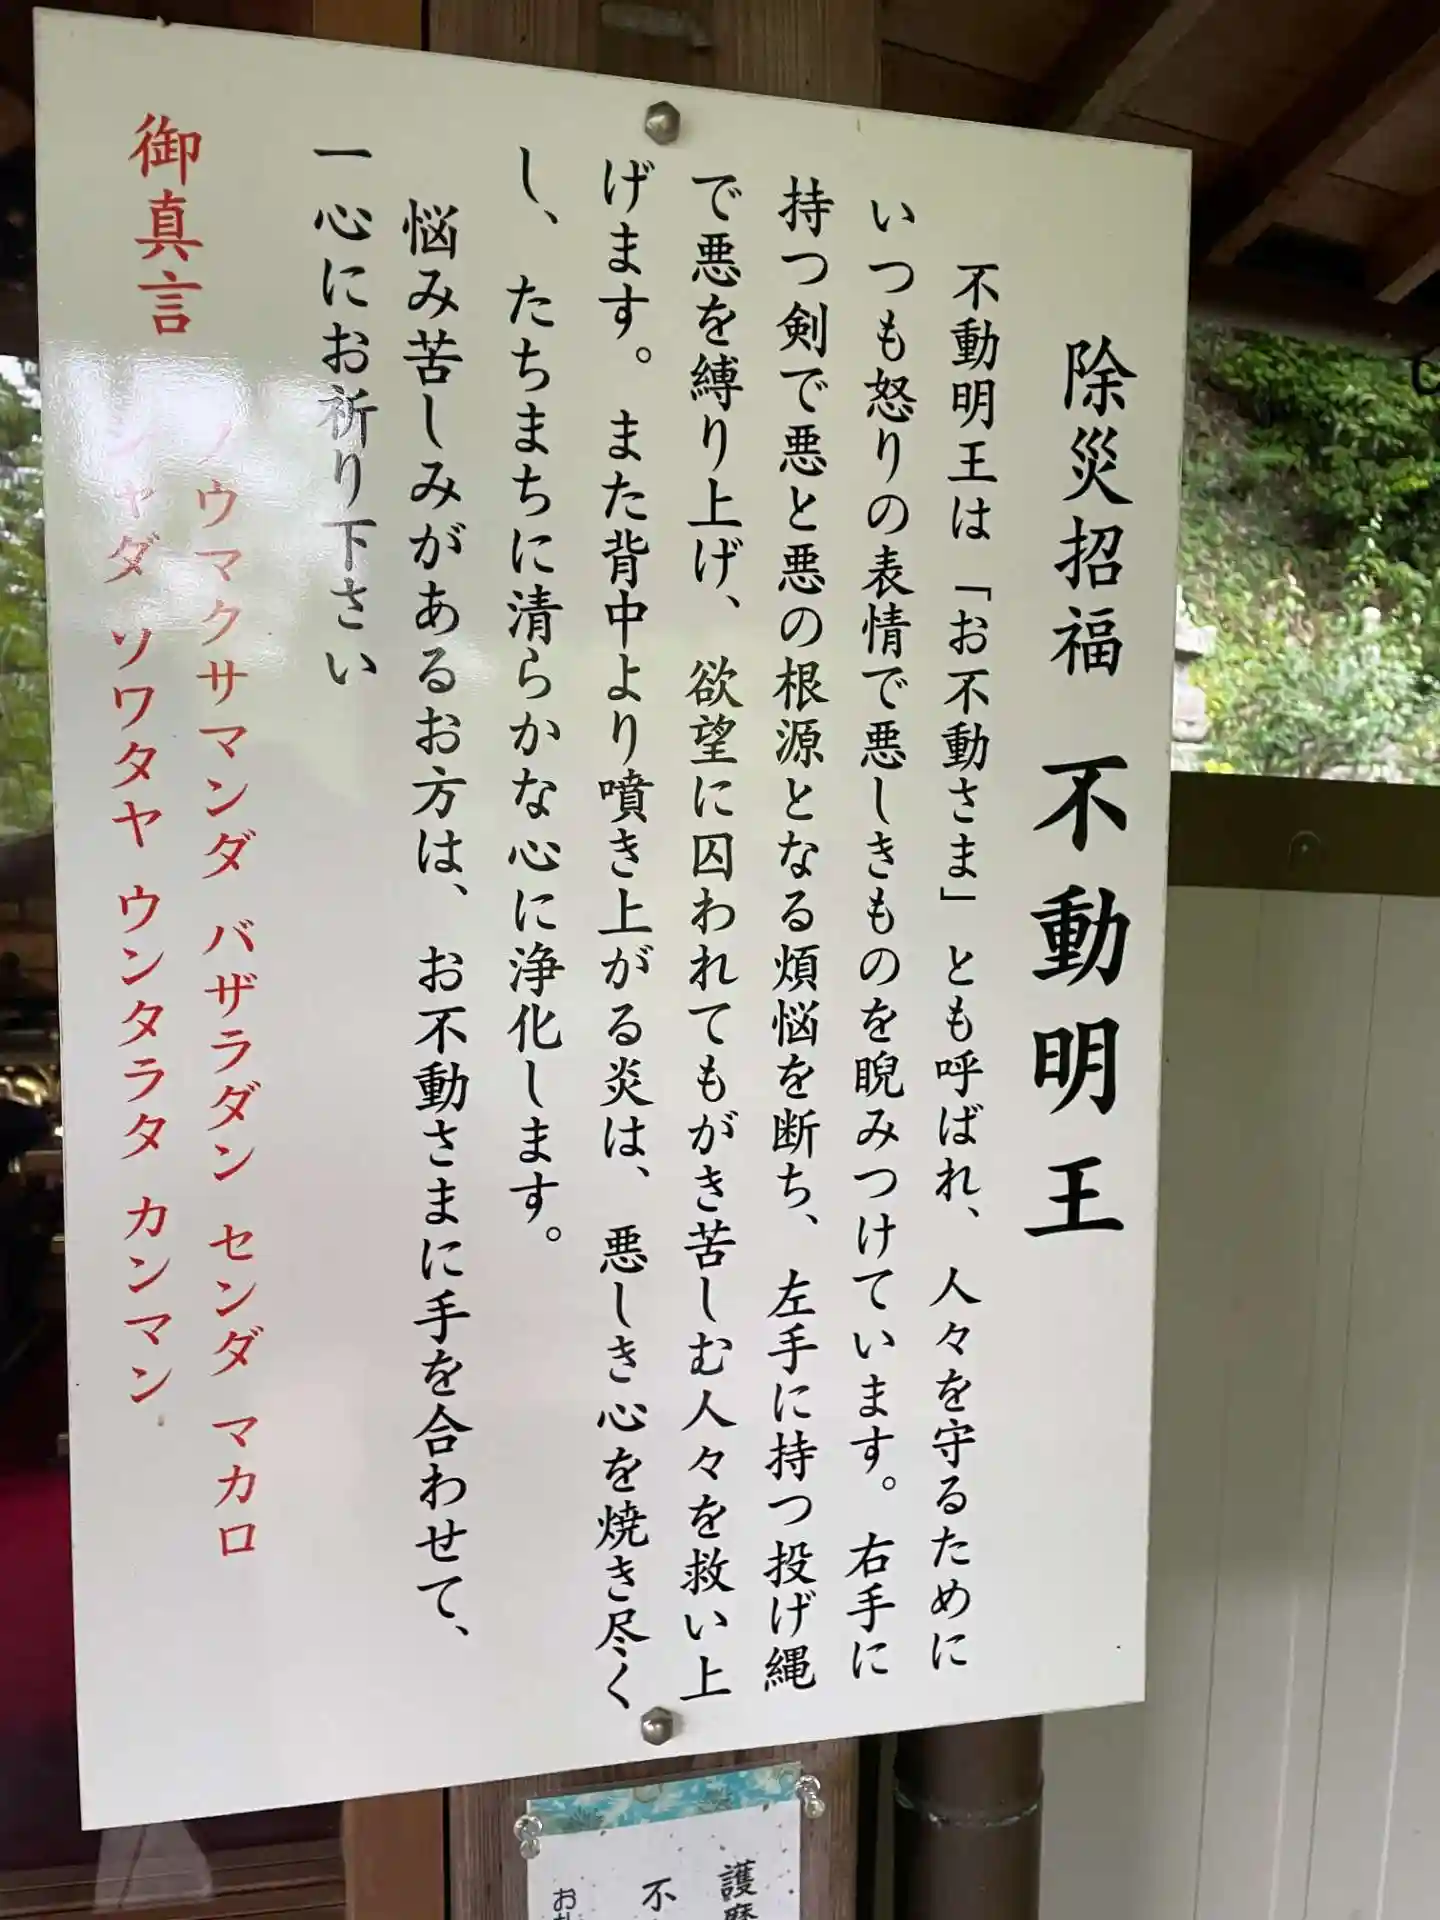 除災招福 不動明王
不動明王は「お不動さま」とも呼ばれ、人々を守るために
いつも怒りの表情で悪しきものを睨みつけています。右手に
持つ剣で悪と悪の根源となる煩悩を断ち、左手に持つ投げ縄
で悪を縛り上げ、欲望に囚われてもがき苦しむ人々を救い上
げます。また背中より噴き上がる炎は、悪しき心を焼き尽く
し、たちまちに清らかな心に浄化します。
悩み苦しみがあるお方は、お不動さまに手を合わせて、
一心にお祈り下さい
御真言
ノウマクサマンダ バザラダン センダ マカロ
シャダ ソワタヤ ウンタラタ カンマン
護摩
不
お札